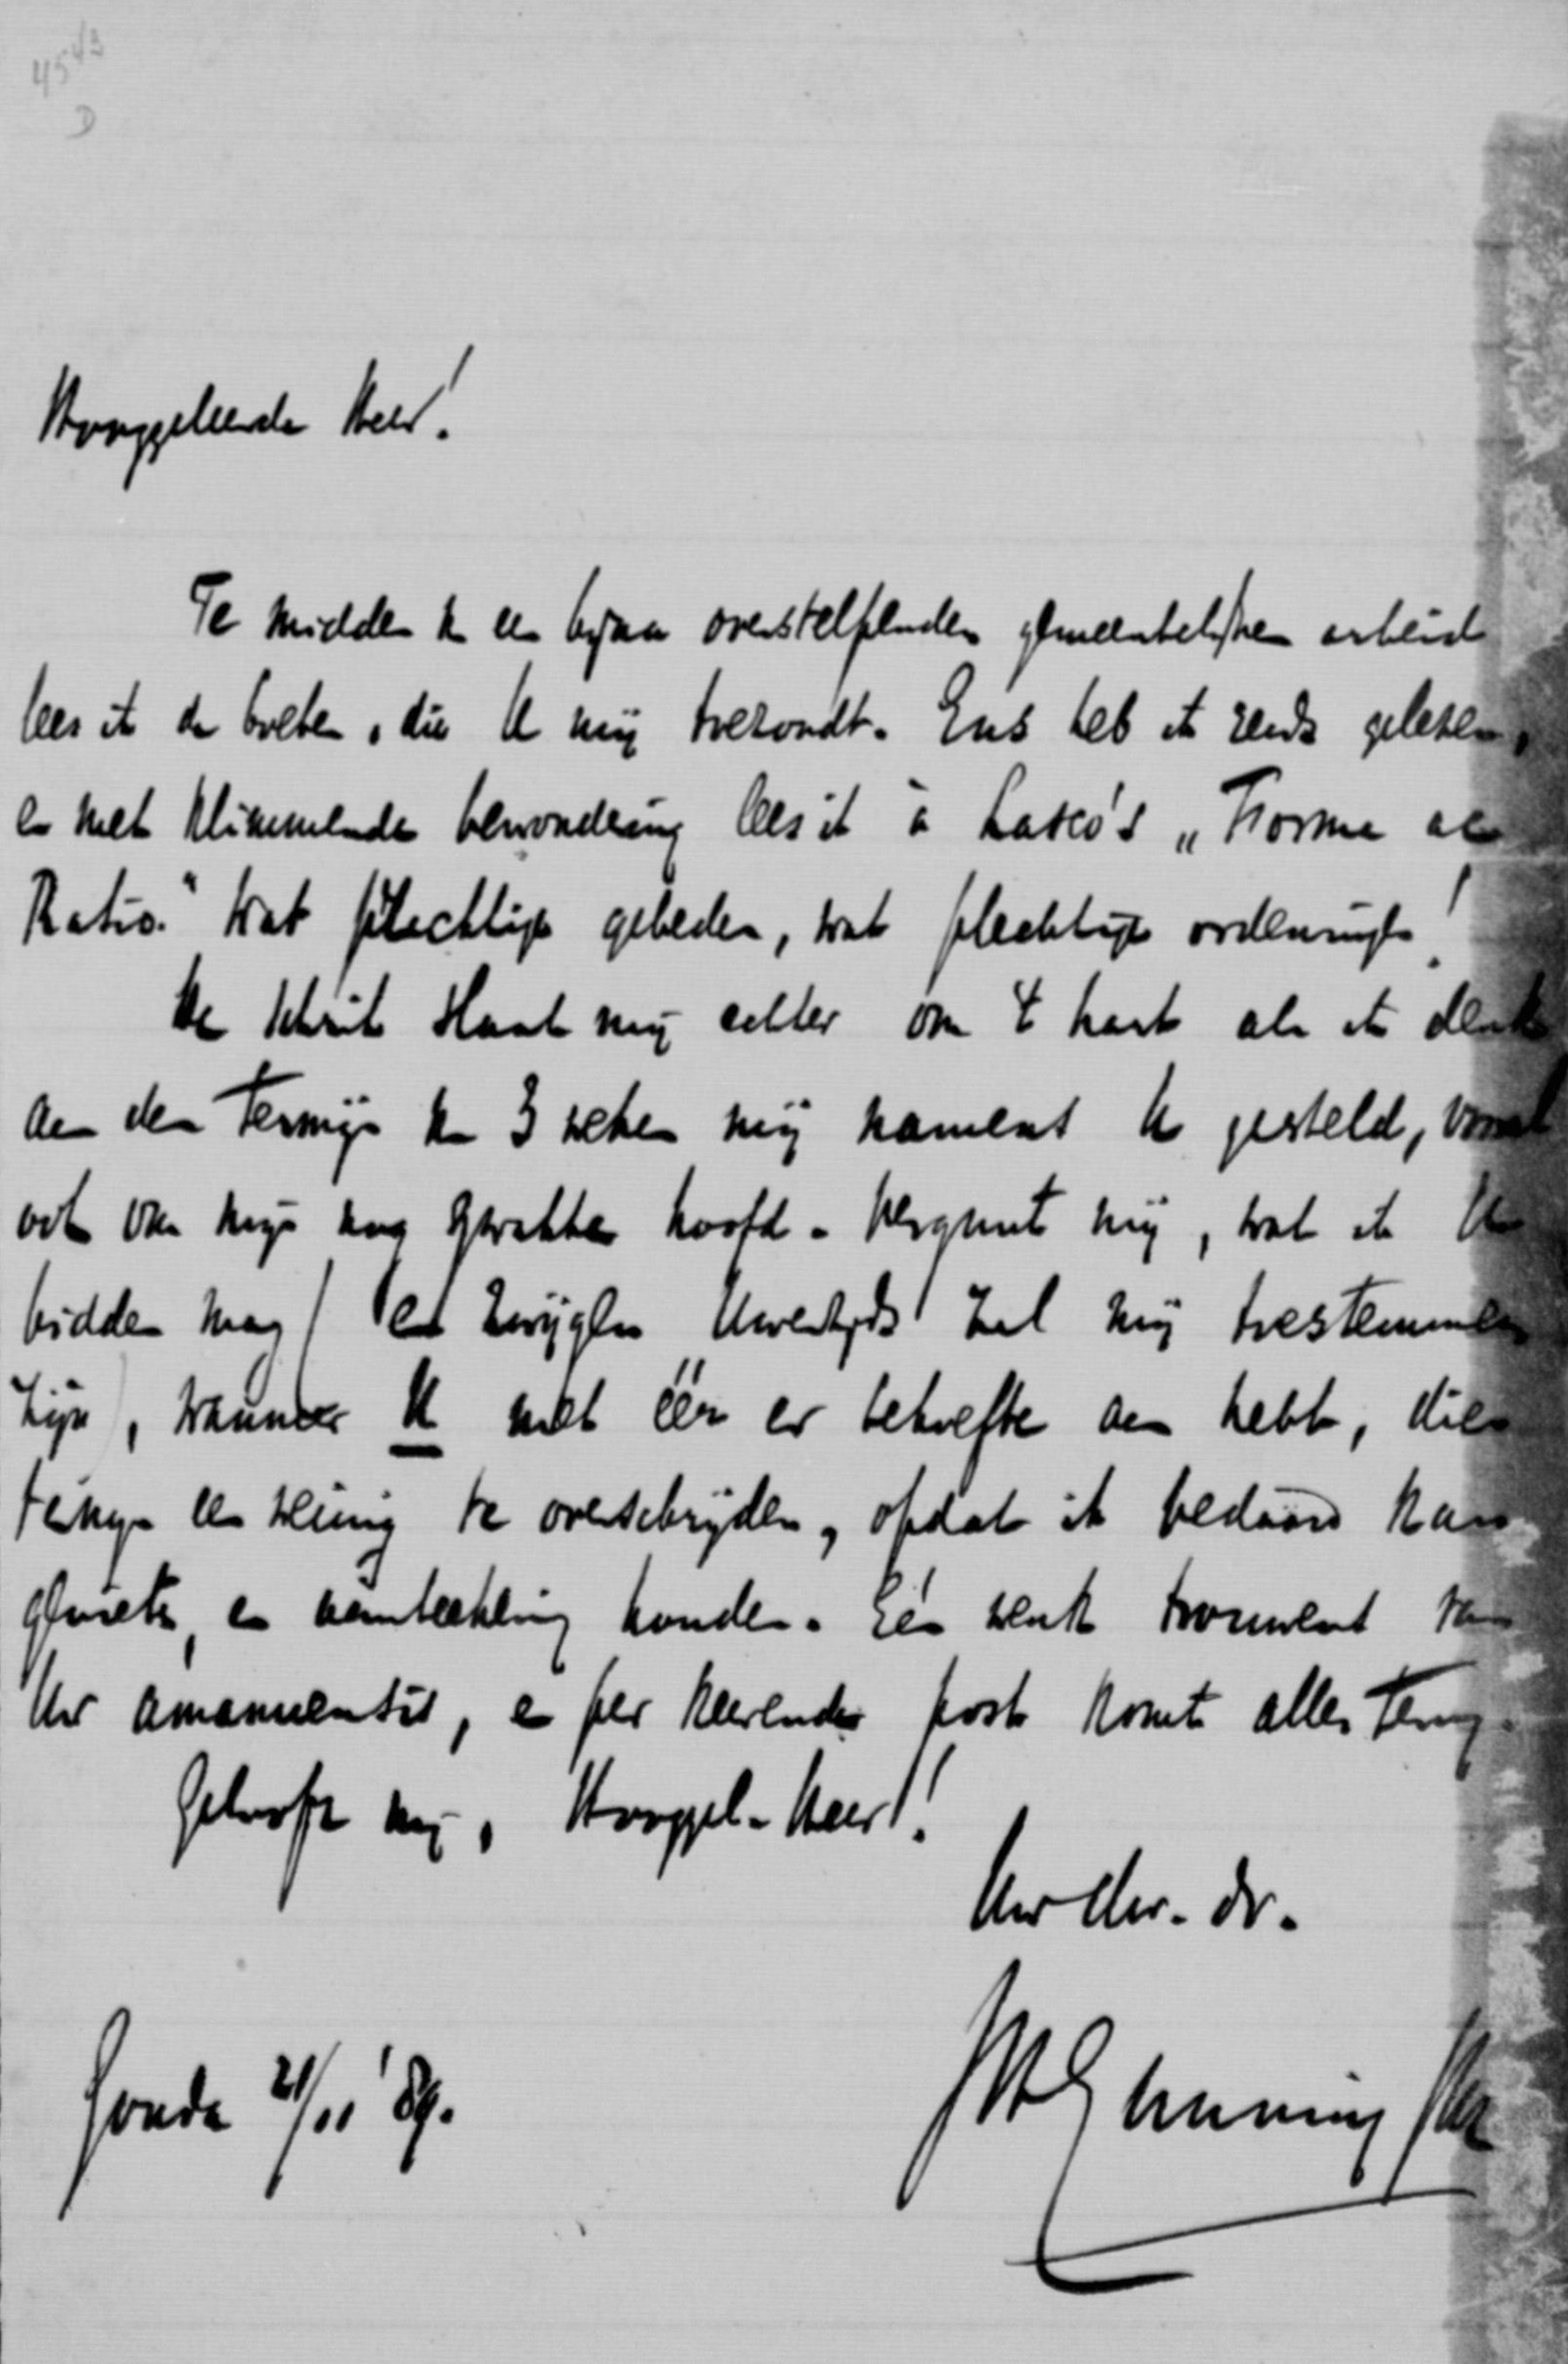 4543
D
Hooggeleerde Heer!
Te midden v. een bijna overstelpenden gemeentelijken arbeid
lees ik de boeken, die U mij toezondt. Ens heb ik reeds gelezen,
en met klimmende bewondering lees ik à Lasco's „Forma ac
Ratio." Wat plechtige gebeden, wat plechtige ordeningen!
De schrik slaat mij echter om 't hart als ik denk
aan den termijn v. 3 weken mij namens U gesteld, vooral
ook om mijn nog zwakke hoofd. Vergunt mij, wat ik U
bidden mag (en zwijgen Uwerzijds zal mij toestemmen
zijn), wanneer U niet één er behoefte aan hebt, dien
termijn een weinig te overschrijden, opdat ik bedaard kan
genieten en aanteekening houden. Eén wenk trouwens van
Uw amanuensis, en per keerende post komt alles terug.
Geloof mij, Hooggel. Heer!
Uw dw. dr.
JH Gunning JHz
Gouda 21/11 '89.